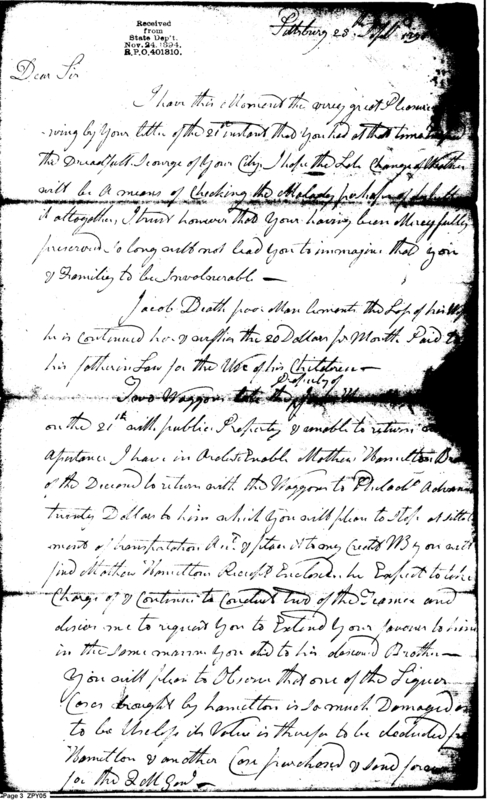 Received
from
State Dep't.
Nov. 24, 1894.
R.P.O, 401810.
Pittsburg 28th Sept
Dear Sir
I have this Moment the very great Pleasure
by Your letter of the 21st instant that You had at that time
the Dreadfull Scourge of Your City. I hope the Late Change of Weather
will be a means of Checking the Malady perhaps of
it altogether, I trust however that Your having been Mercyfully
preserved so long will not lead You to immagine that you
& Families to be Involnerable —
Jacob Death poor Man laments the Loss of his
he is Continued here & the 20 Dollars pr Month Paid
his father in Law for the Use of his Children —
Two Waggons the Property of
on the 21st with public Property & unable to return
I have in Order to Enable Mathew Hamilton
of the Deceased to return with the Waggons to Philada
twenty Dollars to him which You will please to Stop at settle
ment of transportation Act. & place it to my Credit you will
find Mathew Hamiltons Receipt Enclosed he Expects to take
Charge of & Continue to Conduct two of the Teames and
desires me to request You to Extend Your favour to him
in the same manner You did to his deceased Brother —
You will please to Observe that one of the Liquor
Cases brought by Hamilton is so much Damaged
to be Useless its Value is therefore to be deducted
Hamilton & another Case purchased & send
for the Q M Genl —
Page 3 ZPY05